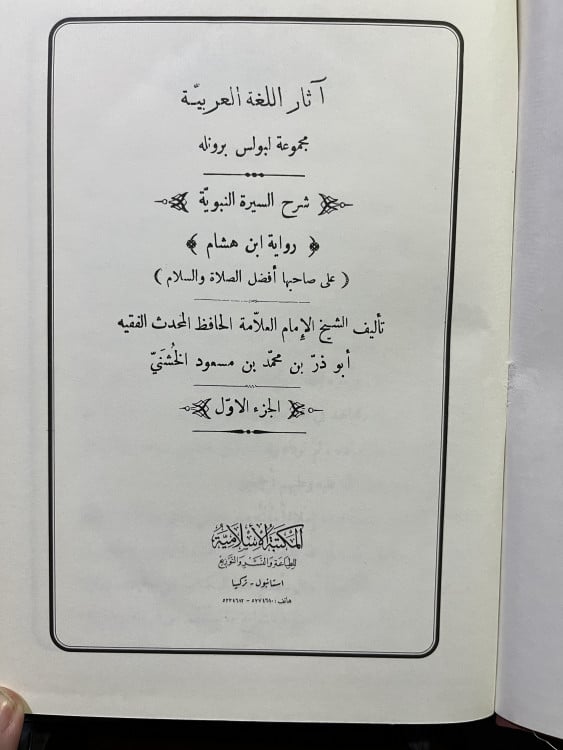 آثار اللغة العربيّة
مجموعة لبولس برونله
شرح السيرة النبويّة
﴿ رواية ابن هشام ﴾
( على صاحبها أفضل الصلاة والسلام )
تأليف الشيخ الإمام العلاّمة الحافظ المحدث الفقيه
أبو ذرّ بن محمّد بن مسعود الخُشَنَيّ
الجزء الاوّل
المكتبة الإسلاميّة
للطباعة والنشر والتوزيع
استانبول - تركيا
هاتف : ٥٢٧٤٦٨٠ - ٥٢٢٤٦٨٢